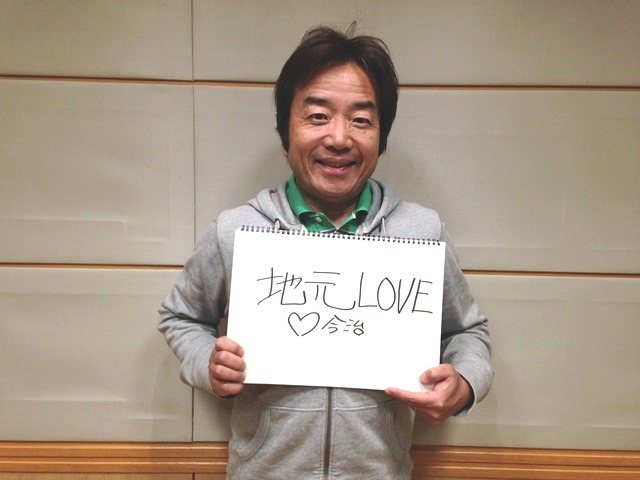 地元LOVE
♡今治